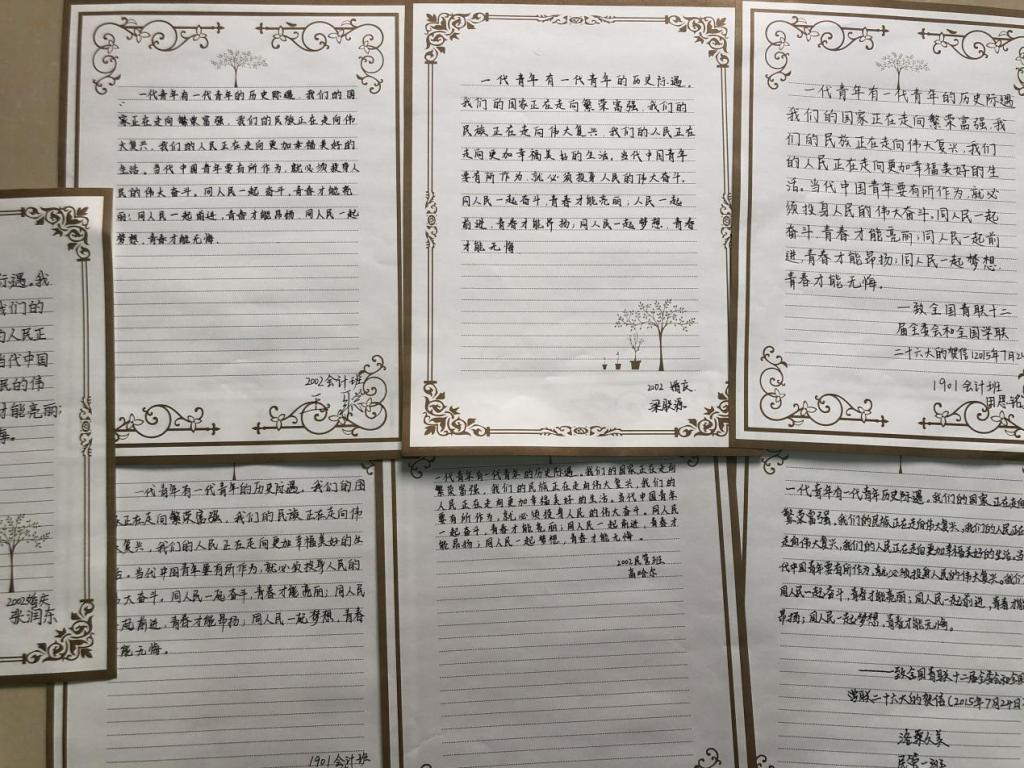 一代青年有一代青年的历史际遇。我们的国
家正在走向繁荣富强,我们的民族正在走向伟
大复兴,我们的人民正在走向更加幸福美好的
生活。当代中国青年要有所作为,就必须投身人
民的伟大奋斗。同人民一起奋斗,青春才能亮
丽;同人民一起前进,青春才能昂扬;同人民一起
梦想,青春才能无悔.
2002会计班
一代青年有一代青年的历史际遇。
我们的国家正在走向繁荣富强,我们的
民族正在走向伟大复兴,我们的人民正在
走向更加幸福美好的生活。当代中国青年
要有所作为,就必须投身人民的伟大奋斗。
同人民一起奋斗,青春才能亮丽;人民一起
前进,青春才能昂扬;同人民一起梦想,青春
才能无悔
2002 婚庆
梁联源
一代青年有一代青年的历史际遇
我们的国家正在走向繁荣富强,我
们的民族正在走向伟大复兴,我们
的人民正在走向更加幸福美好的生
活。当代中国青年要有所作为,就必
须投身人民的伟大奋斗。同人民一起
奋斗,青春才能亮丽;同人民一起前
进,青春才能昂扬;同人民一起梦想,
青春才能无悔.
一致全国青联十二
届全委会和全国学联
二十六大的贺信(2015年7月24
1901会计班
田恩铭
际遇。我
我们的
的人民正
当代中国
民的伟
才能亮丽;
悔。
2002婚庆
张润东
一代青年有一代青年的历史际遇。我们的国
正在走向繁荣富强,我们的民族正在走向伟
复兴,我们的人民正在走向更加幸福美好的生
活。当代中国青年要有所作为,就必须投身人民的
大奋斗。同人民一起奋斗,青春才能亮丽;同人民
起前进,青春才能昂扬;同人民一起梦想,青春
能无悔。
1901会计班
一代青年有一代青年的历史际遇。我们的国家正在走向
繁荣富强,我们的民族正在走向伟大复兴,我们的
人民正在走向更加幸福美好的生活。当代中国青年
要有所作为,就必须投身人民的伟大奋斗。同人民
一起奋斗,青春才能亮丽;同人民一起前进,青春才
能昂扬;同人民一起梦想,青春才能无悔。
2002民管班
高哈尔
一代青年有一代青年历史际遇。我们的国家正在走向
繁荣富强,我们的民族正在走向伟大复兴。我们的人民正在
走向伟大复兴,我们的人民正在走向更加幸福美好的生活。当
代中国青年要有所作为,就必须投身人民的伟大复兴。我们
同人民一起奋斗,青春才能亮丽;同人民一起前进,青春才能
昂扬;同人民一起梦想,青春才能无悔。
——致全国青联十二届全委会和全国
学联二十六大的贺信(2015年7月24日
民管一班